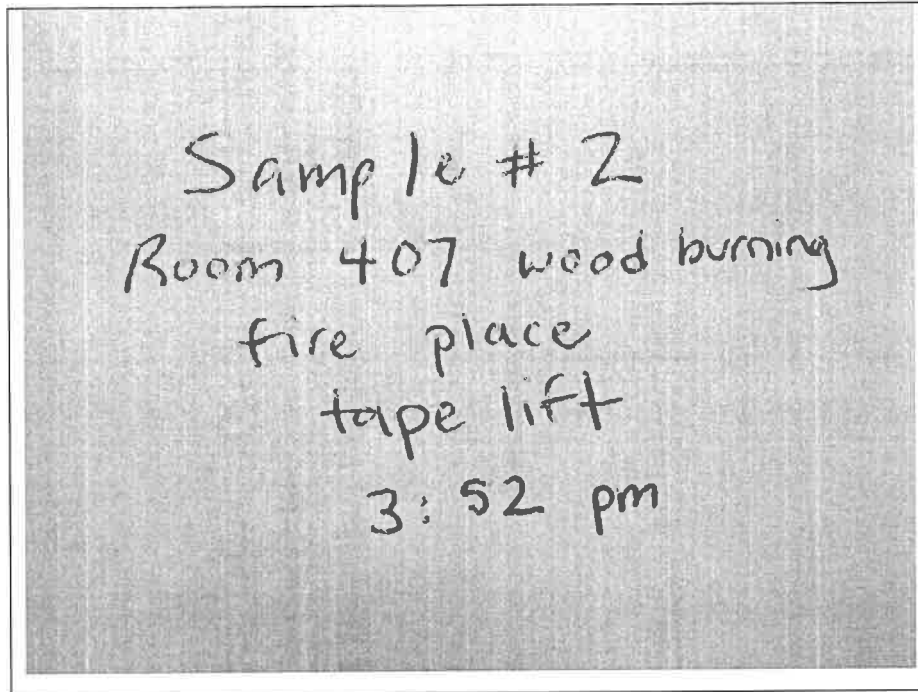 Sample # 2
Room 407 wood burning
fire place
tape lift
3:52 pm